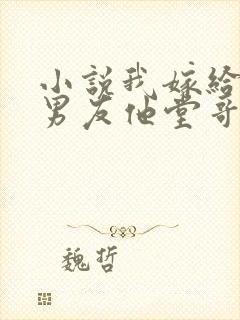 小说我嫁给
男友他堂哥
魏哲